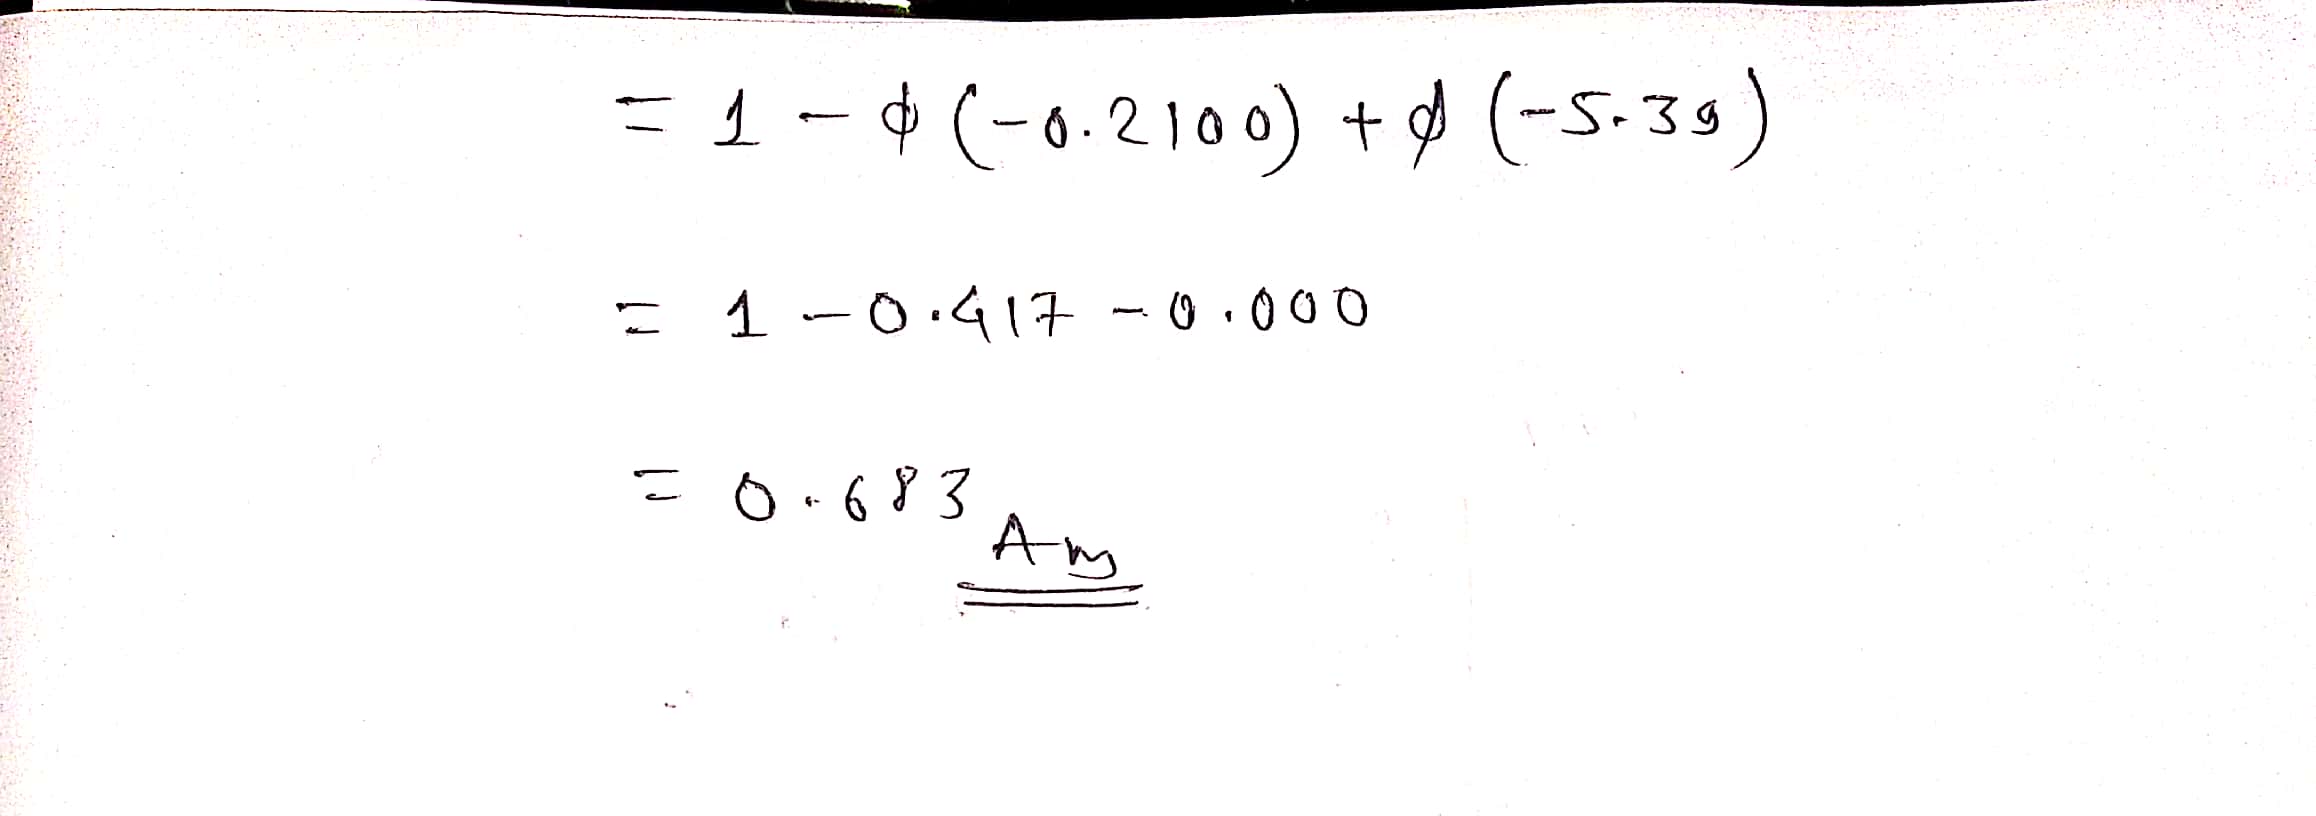 = 1 - φ (-0.2100) + φ (-5.39)
= 1 - 0.417 - 0.000
= 0.683
Ans